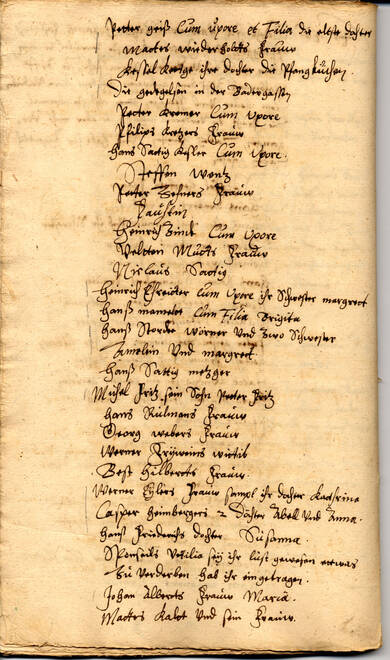 Petter greiß Cum Uxore et Filia die eltste dochter
Mattes wiederholdts Frauw
Kessel Kettge ihre dochter die Pfankuchen.
Die gedegelsen in der Badergassen
Petter Kremer Cum Uxore
Philips Kretzers Frauw
Hans Sattig Kesler Cum Uxore.
Steffen wentz
Petter Frauw
Faustin
Heinrich Cum Uxore
Veltten Mutts Frauw
Niclaus Sattig
Heinrich Cum Uxore ihr Schwester margrett
Hanß Cum Filia Brigita
Hanß wörner Und Zwo Schwester
Und margrett.
Hanß Sattig metzger
Michel Fritz, sein Sohn Petter Fritz
Hans Rülmans Frauw
Georg webers Frauw
Werner wittib
Hilberts Frauw.
Werner Ehlers Frauw sampt ihr dochter Kathrina
Casper heimbergers 2 Döchter Abell Und Anna.
Hanß Friederichs dochter Susanna.
ihr lust gewesen etwas
Zu Verderben hab ihr eingetragen.
Johan Alberts Frauw Maria.
Mattes Kalet Und sein Frauw.